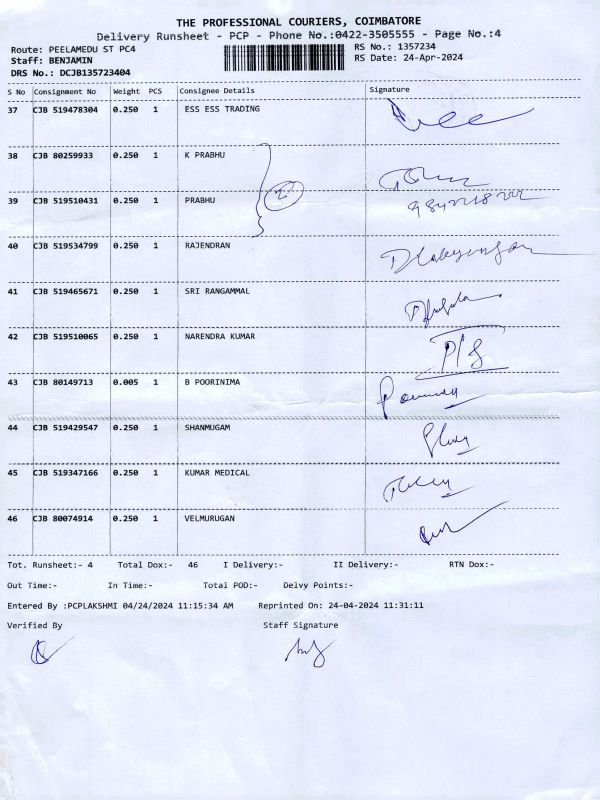 THE PROFESSIONAL COURIERS, COIMBATORE
Delivery Runsheet - PCP - Phone No.:0422-3505555 - Page No.:4
Route: PEELAMEDU ST PC4
RS No.: 1357234
Staff: BENJAMIN
RS Date: 24-Apr-2024
DRS No.: DCJB135723404
S No Consignment No Weight PCS Consignee Details Signature
37 CJB 519478304 0.250 1 ESS ESS TRADING
38 CJB 80259933 0.250 1 K PRABHU
39 CJB 519510431 0.250 1 PRABHU
40 CJB 519534799 0.250 1 RAJENDRAN
41 CJB 519465671 0.250 1 SRI RANGAMMAL
42 CJB 519510065 0.250 1 NARENDRA KUMAR
43 CJB 80149713 0.005 1 B POORINIMA
44 CJB 519429547 0.250 1 SHANMUGAM
45 CJB 519347166 0.250 1 KUMAR MEDICAL
46 CJB 80074914 0.250 1 VELMURUGAN
Tot. Runsheet:- 4 Total Dox:- 46 I Delivery:- II Delivery:- RTN Dox:-
Out Time:- In Time:- Total POD:- Delvy Points:-
Entered By :PCPLAKSHMI 04/24/2024 11:15:34 AM Reprinted On: 24-04-2024 11:31:11
Verified By Staff Signature